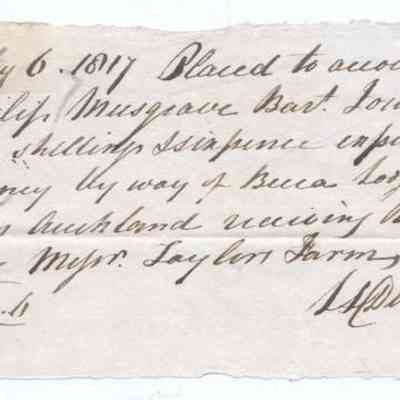 y 6. 1817 Placed to accou
ilip Musgrave Bart. Fou
shillings & sixpence exp
ney by way of Becca Lo
Auckland receiving
Messrs. Taylors Farm,
.6